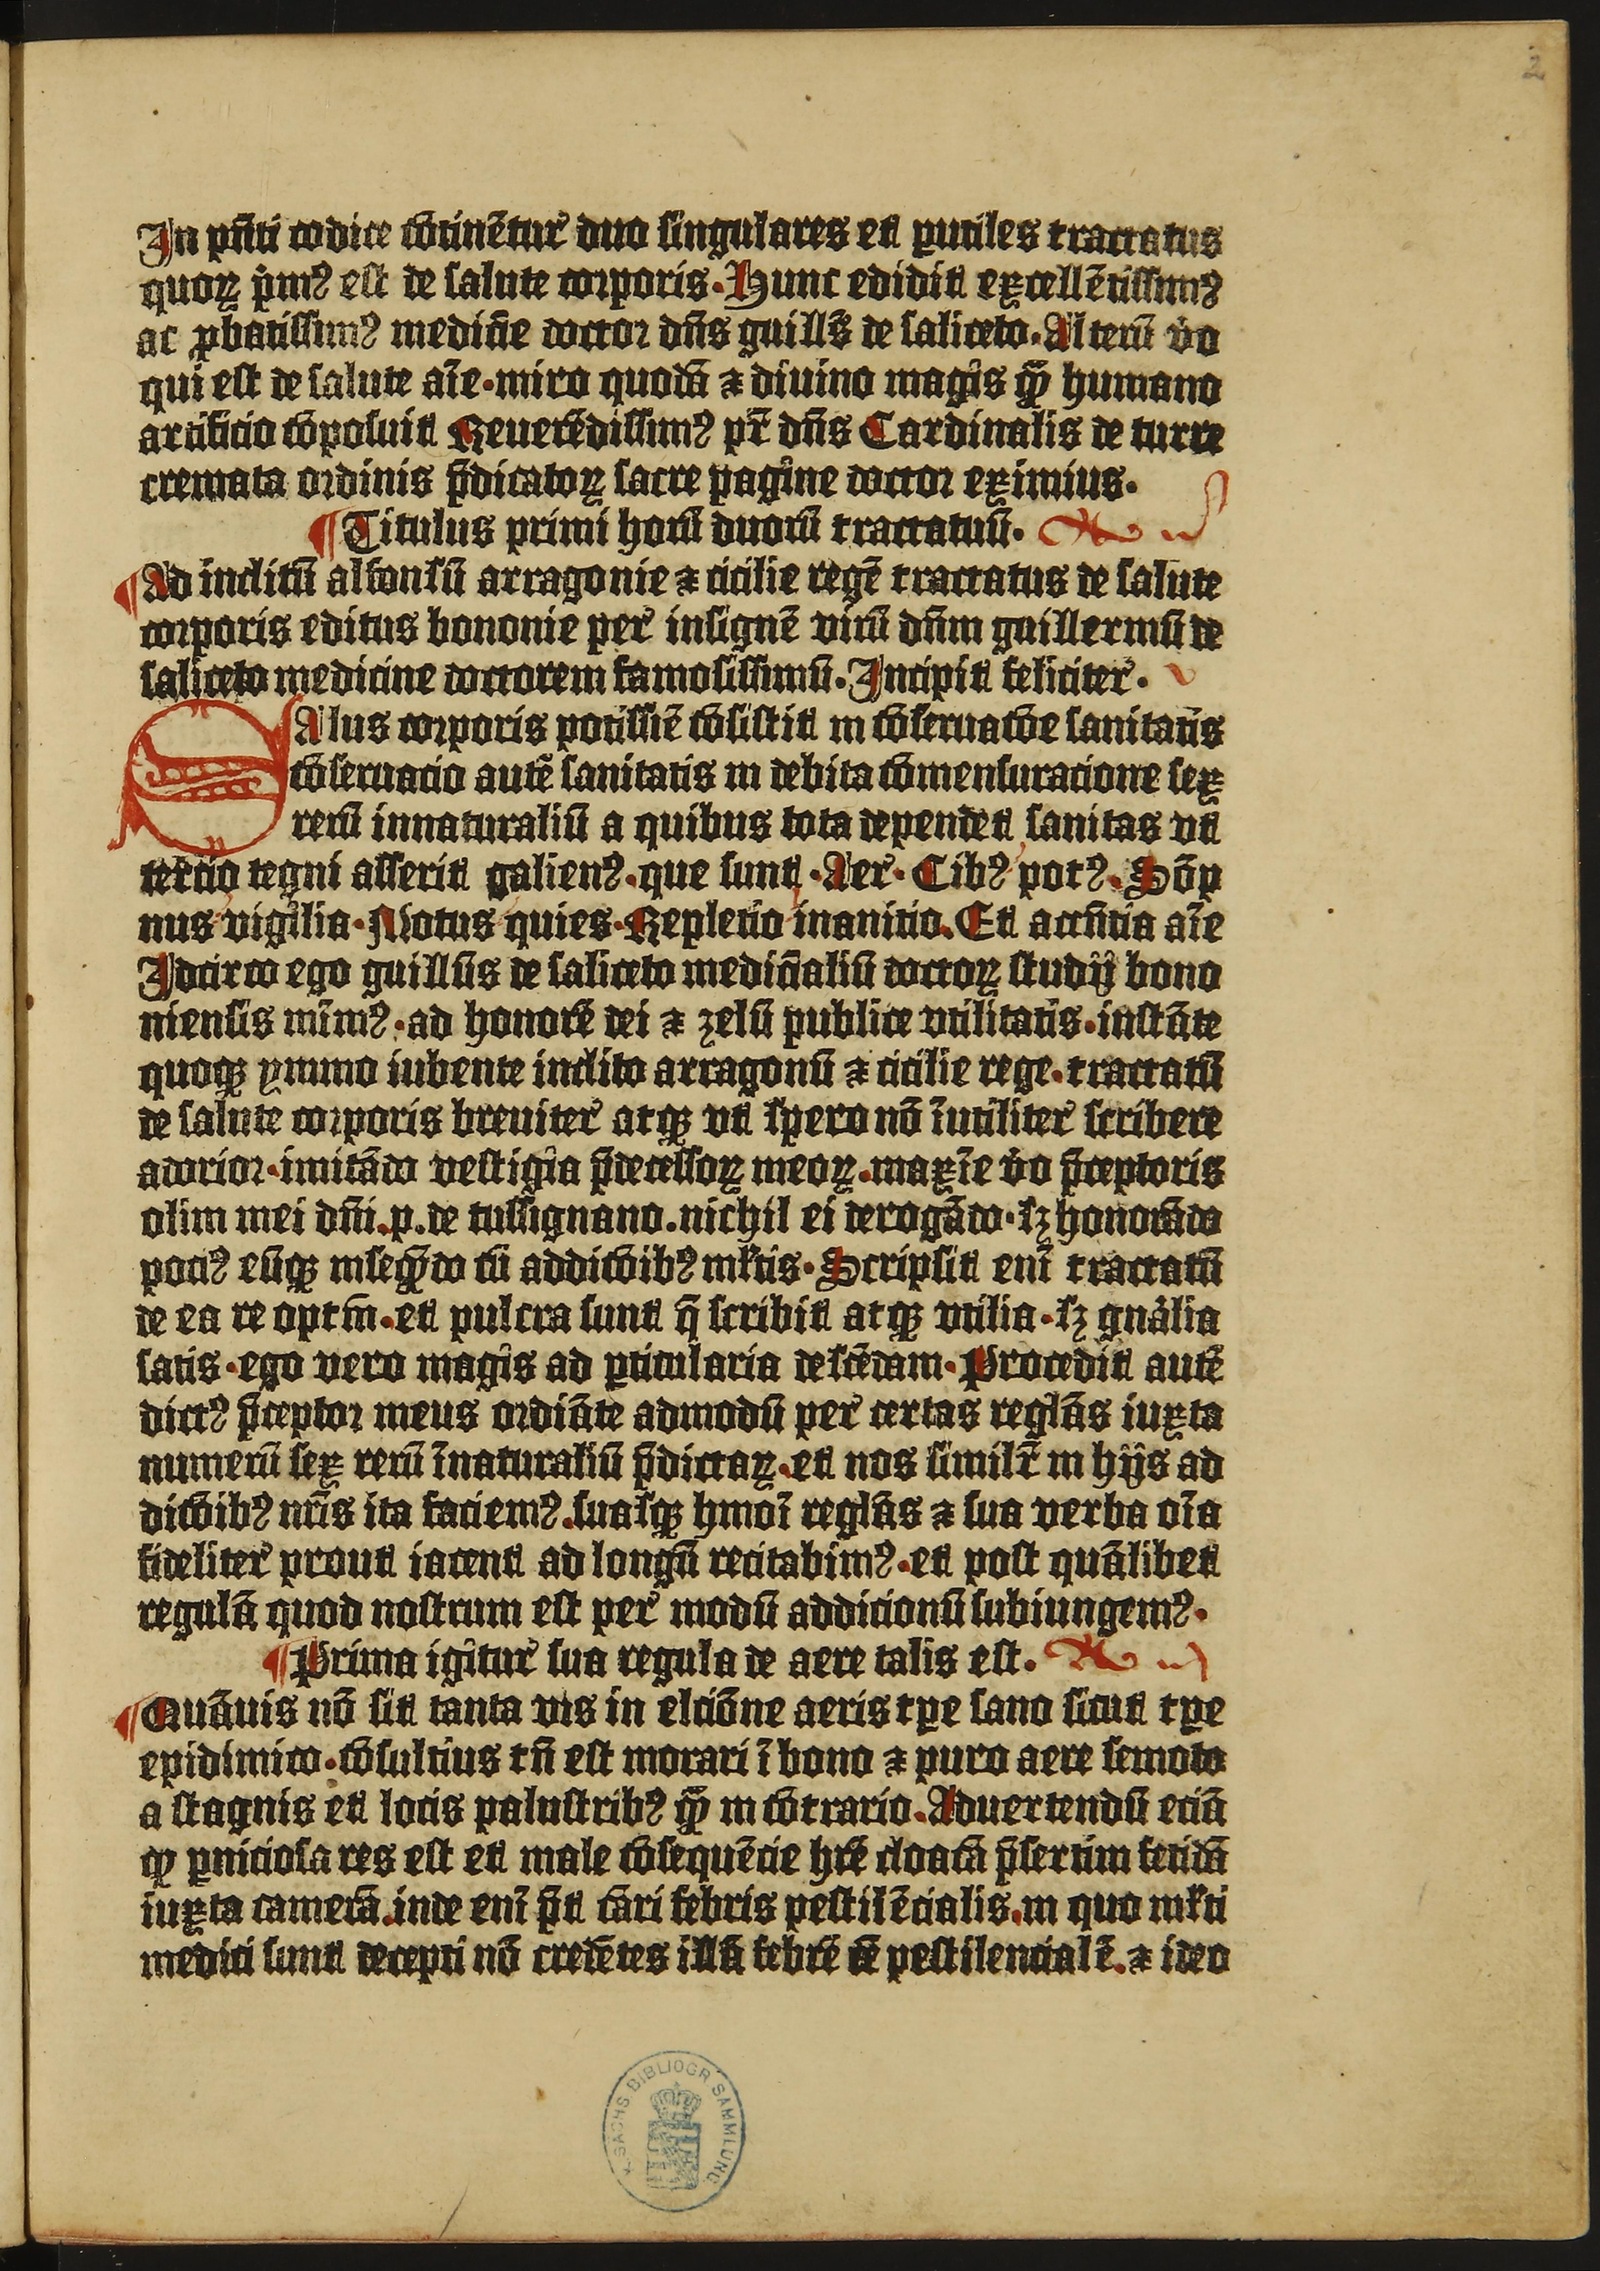 2
In pñti codice cōtinẽtur duo singulares et ꝑutiles tractatus
quoꝝ pͥmꝰ est de salute corporis. Hunc edidit excellẽtissimꝰ
ac ꝓbatissimꝰ mediciē doctor dñs guillūs de saliceto. Alterū vͦo
qui est de salute aīe. miro quodā ⁊ diuino magis ꝙ̄ humano
artificio cōposuit Reuerẽdissimꝰ pr̄ dñs Cardinalis de turre
cremata ordinis p̄dicatoꝝ sacre pagine doctor eximius.
¶ Titulus primi horū duorū tractatuū.
¶ Ad inclitū alfonsū arragonie ⁊ cicilie regē tractatus de salute
corporis editus bononie per insignē virū dñm guillermū de
saliceto medicine doctorem famosissimū. Incipit feliciter.
SAlus corporis potissiē cōsistit in cōseruatōe sanitatis
cōseruacio autē sanitatis in debita cōmensuracione sex
rerū innaturaliū a quibus tota dependet sanitas vt
tercio tegni asserit galienꝰ. que sunt. Aer. Cibꝰ potꝰ. Sōp
nus vigilia. Motus quies. Repletio inanitio. Et accn̄tia aīe
Idcirco ego guillūs de saliceto medicīaliū doctoꝝ studij bono
niensis mīmꝰ. ad honorē dei ⁊ zelū publice vtilitatis. instāte
quoqꝫ ymmo iubente inclito arragonū ⁊ cicilie rege. tractatū
de salute corporis breuiter atqꝫ vt spero nō īutiliter scribere
adorior. imitādo vestigia p̄decessoꝝ meoꝝ. maxīe vͦo p̄ceptoris
olim mei dñi. p. de tussignano. nichil ei derogādo. sꝫ honorādo
pociꝰ eūqꝫ inseqꝙ̄do cū addicōibꝰ ml̄tis. Scripsit enī tractatū
de ea re optm̄. et pulcra sunt q̄ scribit atqꝫ vtilia. sꝫ gnālia
satis. ego vero magis ad ꝑticularia descēdam. Procedit autē
dictꝰ p̄ceptor meus ordiāte admodū per certas reglās iuxta
numerū sex rerū īnaturaliū p̄dictaꝝ. et nos similr̄ in hijs ad
dicōibꝰ nr̄is ita faciemꝰ. suasqꝫ hmōi reglās ⁊ sua verba oīa
fideliter prout iacent ad longū recitabimꝰ. et post quālibet
regulā quod nostrum est per modū addicionū subiungemꝰ.
¶ Prima igitur sua regula de aere talis est.
¶ Quāuis nō sit tanta vis in elciōne aeris tꝑe sano sicut tꝑe
epidimico. cōsultius tn̄ est morari ī bono ⁊ puro aere semoto
a stagnis et locis palustribꝰ ꝙ̄ in cōtrario. Aduertendū eciā
ꝙ ꝑniciosa res est et male cōsequēcie hr̄e cloacā p̄sertim fetidā
iuxta camerā. inde enī p̄t cāri febris pestilēcialis. in quo ml̄ti
medici sunt decepti nō credētes illā febrē eē pestilencialē. ⁊ ideo
K. SÄCHS. BIBLIOGR. SAMMLUNG